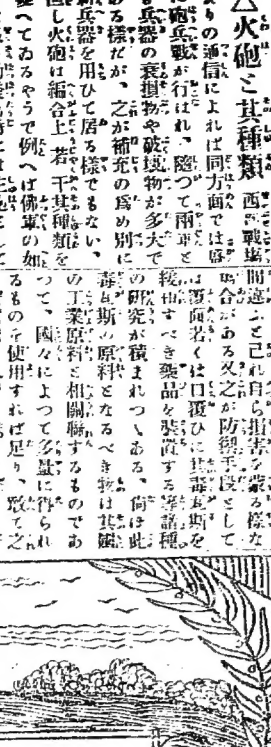 △火砲と其種類　西部戰場
よりの通信によれば同方面では
砲兵戰が行はれ、隨つて兩軍と
兵器の衰損物や破壞物が多大で
ある樣だが、之が補充の爲め別に
新兵器を用ひて居る樣でもない、
但し火砲は編合上若干其種類を
へてゐるやうで例へば佛軍の如
間違ふと己れ自ら損害を蒙る樣な
場合がある又之が防禦手段として
は覆面若くは口覆ひに其毒瓦斯を
すべき藥品を裝置する等諸種
の研究が積まれつゝある、尚ほ此
毒瓦斯の原料となるべき物は其國
の工業原料と相關聯するものであ
つて、國々によつて多量に得られ
るものを使用すれば足り、敢て之